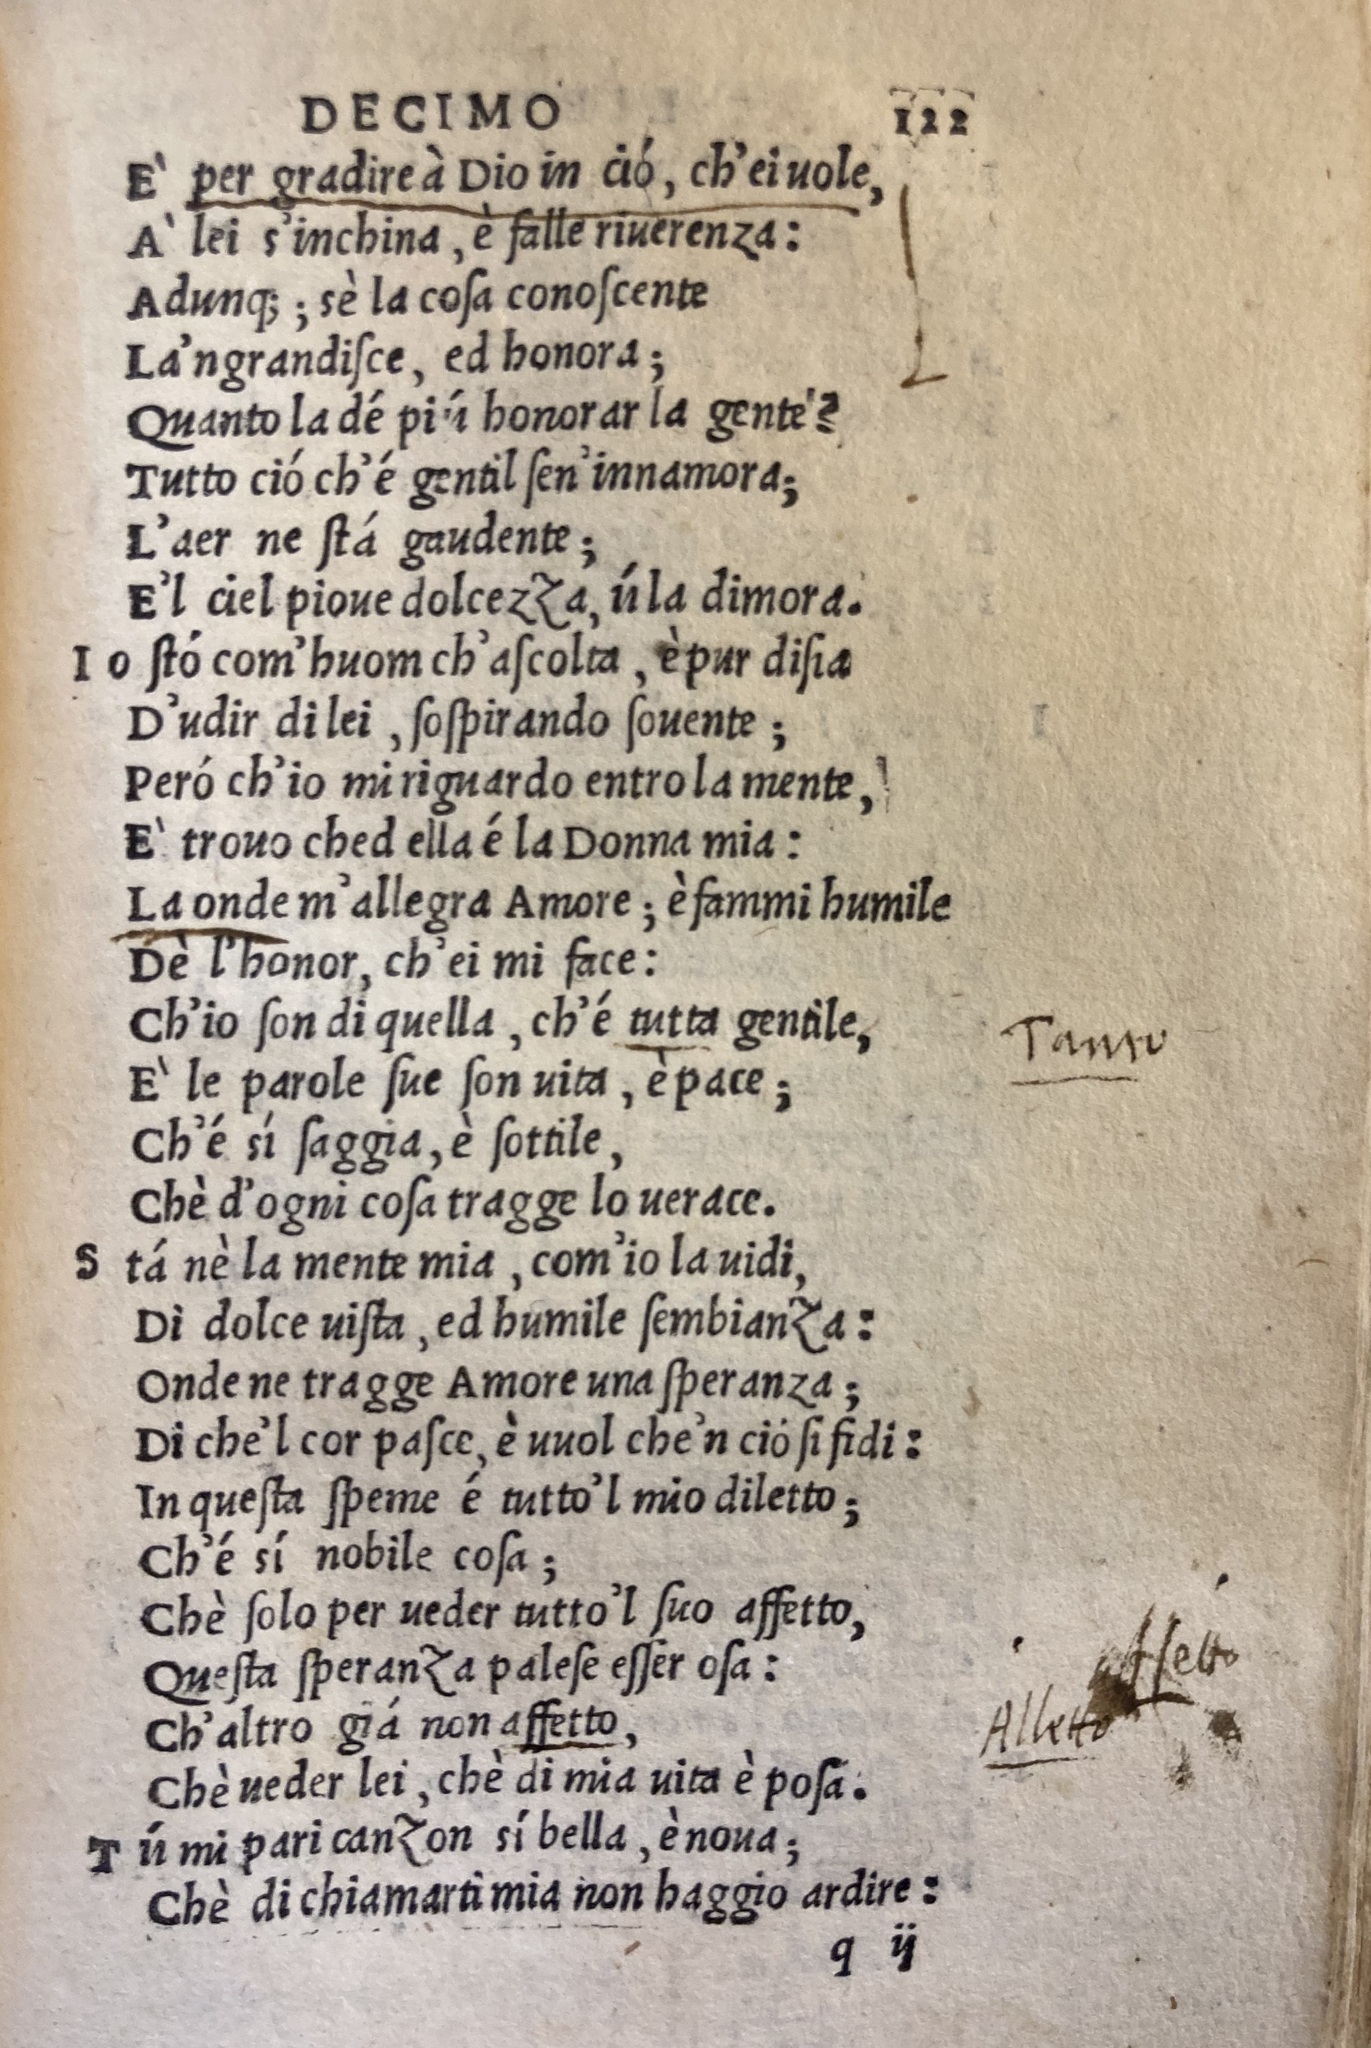 DECIMO 122
E` per gradire à Dio in ció, ch'ei uole,
A` lei s'inchina, è falle riuerenza:
Adunq; ; sè la coſa conoſcente
La'ngrandiſce, ed honora;
Quanto la dé piú honorar la gente?
Tutto ció ch'é gentil ſen'innamora;
L'aer ne ſtá gaudente;
E'l ciel pioue dolcezza, ú la dimora.
Io ſtó com'huom ch'aſcolta, è pur diſia
D'udir di lei, ſoſpirando ſouente;
Peró ch'io mi riguardo entro la mente,
E` trouo ched ella é la Donna mia:
La onde m'allegra Amore; è fammi humile
Dè l'honor, ch'ei mi face:
Ch'io ſon di quella, ch'é tutta gentile,
Tanto
E` le parole ſue ſon uita, è pace;
Ch'é sí ſaggia, è ſottile,
Chè d'ogni coſa tragge lo uerace.
Stá nè la mente mia, com'io la uidi,
Di dolce uiſta, ed humile ſembianza:
Onde ne tragge Amore una ſperanza;
Di che'l cor paſce, è uuol che'n ció ſi fidi:
In queſta ſpeme é tutto'l mio diletto;
Ch'é sí nobile coſa;
Chè ſolo per ueder tutto'l ſuo affetto,
Queſta ſperanza paleſe eſſer oſa:
affetto
Ch'altro giá non affetto,
Alletto
Chè ueder lei, chè di mia uita è poſa.
Tú mi pari canzon sí bella, è noua;
Chè di chiamarti mia non haggio ardire:
q ij